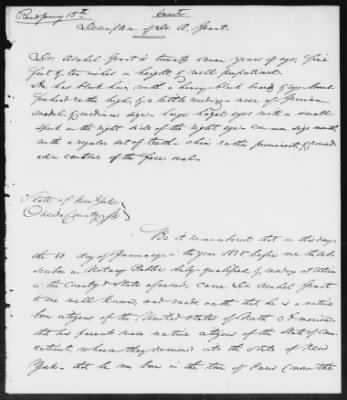 Recd January 15th
Grant
Description of Dr. A. Grant.
Dr. Asahel Grant is twenty seven years of age, five
feet & ten inches in height, & well proportioned.
He has black hair, with a heavy black beard & eyes
forehead rather high, & a little nose of Grecian
model, & medium size - large hazel eyes with a small
speck on the right side of the right eye - common size mouth
with a regular set of teeth - chin rather prominent, & round
ed - contour of the face oval -
State of New York
Oneida County Ss
Be it remembered that on this day
the 10 day of January in the year 1835, before me the sub
scriber a Notary Public duly qualified & residing at Utica
in the County & State aforesaid, came Dr Asahel Grant
to me well known, and made oath that he is a native
born citizen of the United States of North America
that his parents were native citizens of the State of Con
necticut, whence they removed into the State of New
York - that he was born in the town of Paris (now the